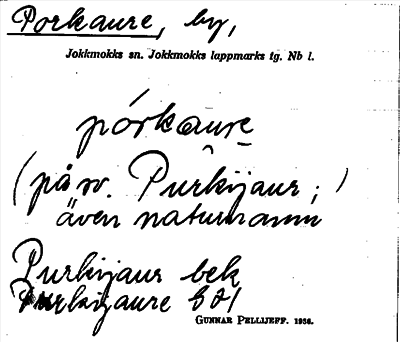 Porkaure, by,
Jokkmokks sn. Jokkmokks lappmarks tg. Nb l.
pórkaure
(på sv. Purkijaur;)
även naturnamn
Purkijaur bek
Purkijaure
GUNNAR PELLIJEFF. 1936.